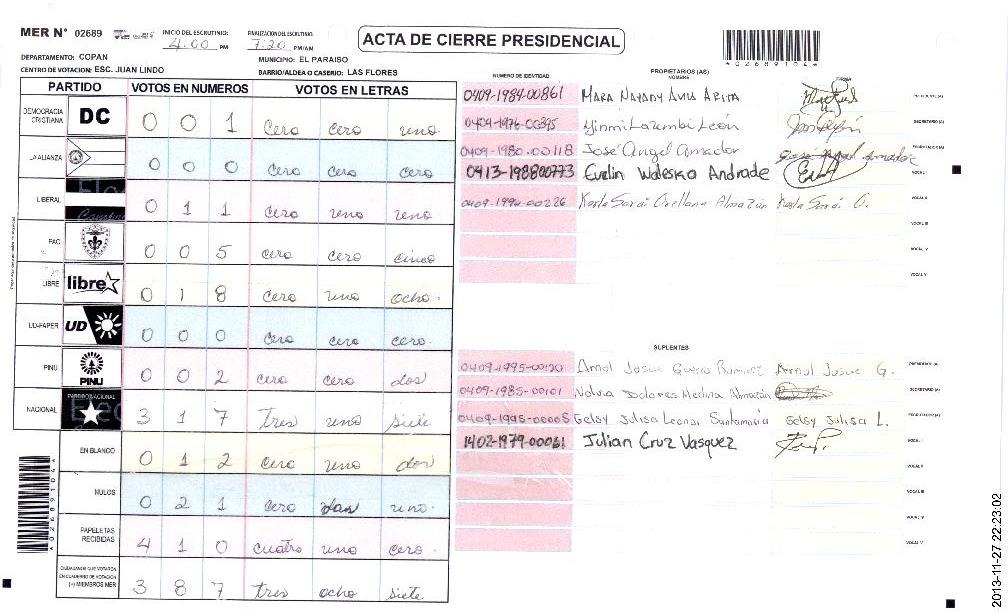 MER N° 02689
INICIO DEL ESCRUTINIO: 4:00 PM
FINALIZACIÓN DEL ESCRUTINIO: 7:20 PM/AM
ACTA DE CIERRE PRESIDENCIAL
DEPARTAMENTO: COPAN
MUNICIPIO: EL PARAISO
CENTRO DE VOTACION: ESC. JUAN LINDO
BARRIO/ALDEA O CASERIO: LAS FLORES
4026891044
PARTIDO VOTOS EN NUMEROS VOTOS EN LETRAS
DEMOCRACIA CRISTIANA DC 0 0 1 cero cero uno
LA ALIANZA 0 0 0 cero cero cero
LIBERAL 0 1 1 cero uno uno
PAC 0 0 5 cero cero cinco
LIBRE libre 0 1 8 cero uno ocho.
UD-FAPER UD 0 0 0 cero cero cero.
PINU PINU 0 0 2 cero cero dos
NACIONAL PARTIDO NACIONAL 3 1 7 tres uno siete
EN BLANCO 0 1 2 cero uno dos
NULOS 0 2 1 cero dos uno.
PAPELETAS RECIBIDAS 4 1 0 cuatro uno cero.
CIUDADANOS QUE VOTARON EN CUADERNO DE VOTACION (+) MIEMBROS MER 3 8 7 tres ocho siete
NUMERO DE IDENTIDAD PROPIETARIOS (AS) NOMBRE FIRMA
0409-1984-00861 PRESIDENTE (A)
0409-1976-00395 SECRETARIO (A)
0409-1980-00118 José Angel Amador José Angel Amador ESCRUTADOR (A)
0413-198800773 Evelin Waleska Andrade VOCAL I
0409-1994-00226 Karla Sarai Orellana Almazán Karla Sarai O. VOCAL II
VOCAL III
VOCAL IV
VOCAL V
SUPLENTES
0409-1995-00120 Arnol Josue Guerra Ramirez Arnol Josue G. PRESIDENTE (A)
0409-1985-00101 Dolores Medina Almazán SECRETARIO (A)
0409-1995-00005 Gelsy Julisa Leonor Santamaria Gelsy Julisa L. ESCRUTADOR (A)
1402-1979-00061 Julian Cruz Vasquez VOCAL I
VOCAL II
VOCAL III
VOCAL IV
VOCAL V
4026891044
2013-11-27 22:23:02